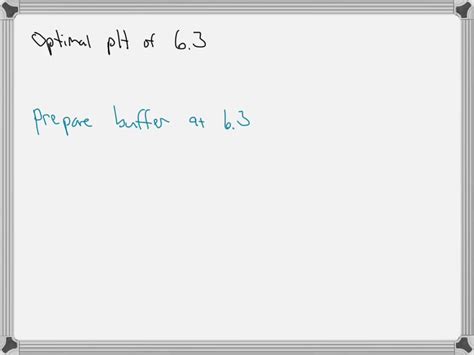 Optimal pH of 6.3
Prepare buffer at 6.3